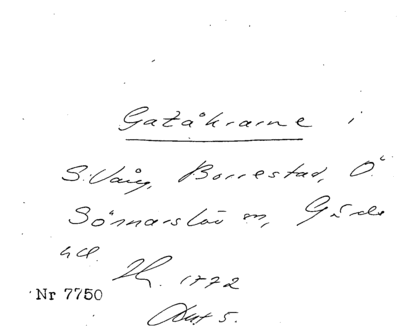 Gatåkrarne i
S. Vång, Borrestad, Ö.
Sönnarslöv m, Gärds
hd.
1772
Nr 7750
5.